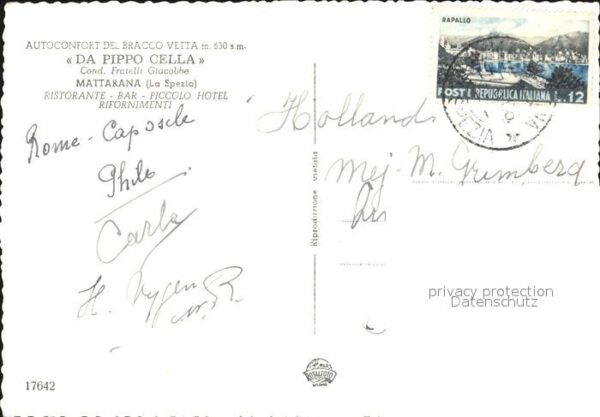 AUTOCONFORT DEL BRACCO VETTA m. 630 s.m.
« DA PIPPO CELLA »
Cond. Fratelli Giacobbe
MATTARANA (La Spezia)
RISTORANTE - BAR - PICCOLO HOTEL
RIFORNIMENTI
Rome - Caposele
Philo
Carla
H.
17642
Riproduzione vietata
RAPALLO
POSTE REPUBBLICA ITALIANA L. 12
SPEZIA
Holland
Mej. M. Grimberg
privacy protection
Datenschutz